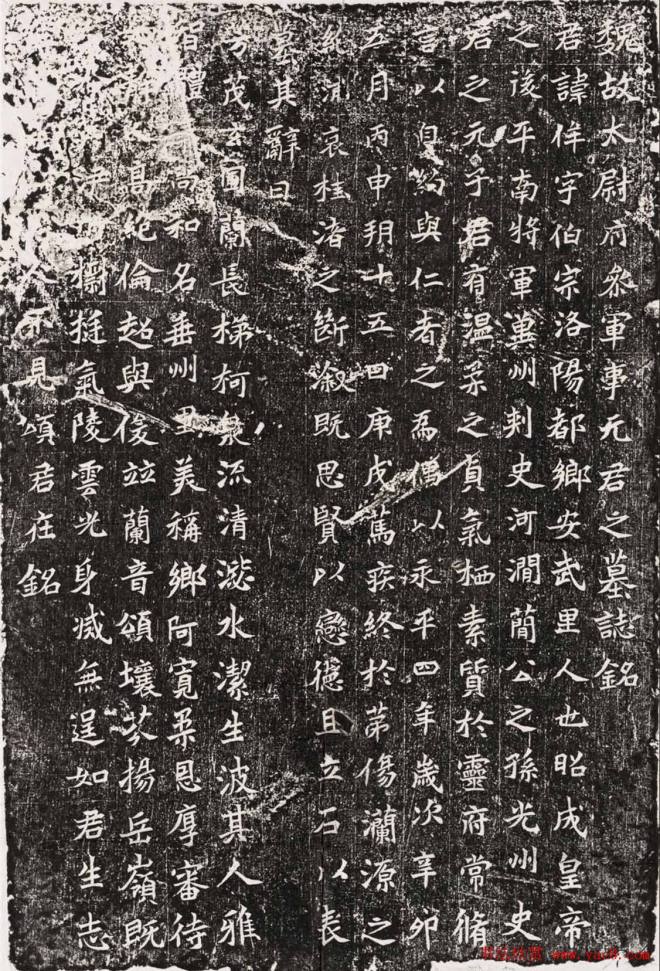 魏故太尉府參軍事元君之墓誌銘
君諱侔字伯宗洛陽都鄉安武里人也昭成皇帝
之後平南將軍冀州刾史河澗簡公之孫光州史
君之元子君有温柔之貞氣栖素質於靈府常脩
言以自約與仁者之爲儔以永平四年歲次辛卯
五月丙申玥十五日庚戌篤疾終於第傷瀾源之
絶流哀桂渚之斷溆既思賢以戀德且立石以表
墓其辭曰
芳茂玄圃蘭長梯柯泉流清澨水潔生波其人雅
尚和名垂州里美稱鄉阿寬柔恩厚審待
高絶倫超與儁竝蘭音頌壤芬揚岳嶺既
挺氣陵雲光身滅無逞如君生志
不見頌君在銘